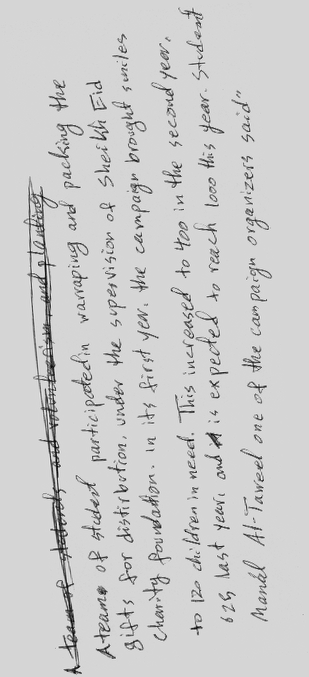 A team of students and volunteerism, and planting
A team of student participated in warraping and packing the
gifts for distirbution, under the supervision of Sheikh Eid
charity foundation. In its first year, the campaign brought smiles
to 120 children in need. This increased to 400 in the second year,
625 last year, and is expected to reach 1000 this year. Student
Manal Al-Taweel one of the campaign organizers said"